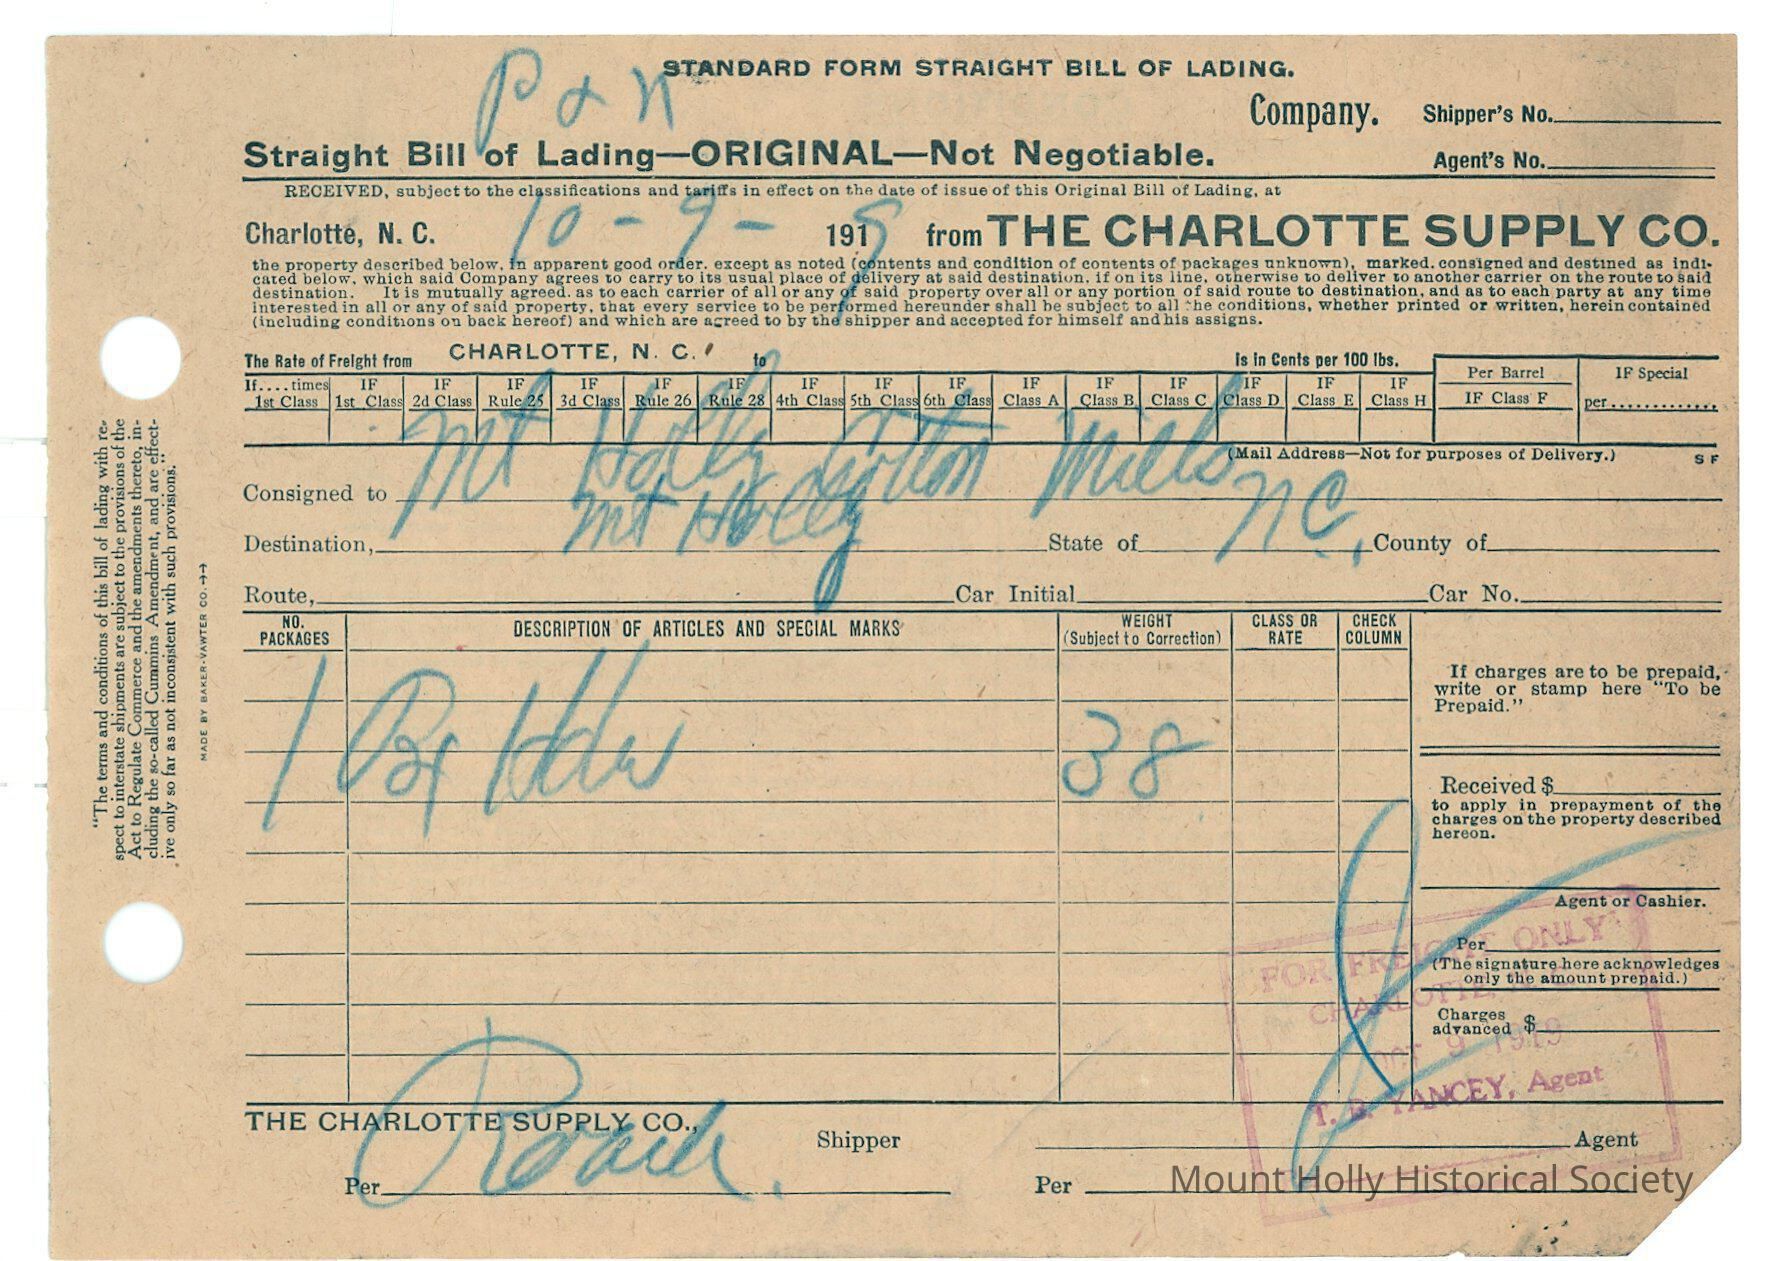 P & N
STANDARD FORM STRAIGHT BILL OF LADING.
Company. Shipper's No.
Straight Bill of Lading—ORIGINAL—Not Negotiable. Agent's No.
RECEIVED, subject to the classifications and tariffs in effect on the date of issue of this Original Bill of Lading, at
Charlotte, N. C. 10 - 9 - 1919 from THE CHARLOTTE SUPPLY CO.
the property described below, in apparent good order, except as noted (contents and condition of contents of packages unknown), marked, consigned and destined as indi-
cated below, which said Company agrees to carry to its usual place of delivery at said destination, if on its line, otherwise to deliver to another carrier on the route to said
destination. It is mutually agreed, as to each carrier of all or any of said property over all or any portion of said route to destination, and as to each party at any time
interested in all or any of said property, that every service to be performed hereunder shall be subject to all the conditions, whether printed or written, herein contained
(including conditions on back hereof) and which are agreed to by the shipper and accepted for himself and his assigns.
The Rate of Freight from CHARLOTTE, N. C. to Is in Cents per 100 lbs.
If....times 1st Class IF 1st Class IF 2d Class IF Rule 25 IF 3d Class IF Rule 26 IF Rule 28 IF 4th Class IF 5th Class IF 6th Class IF Class A IF Class B IF Class C IF Class D IF Class E IF Class H Per Barrel IF Class F IF Special per.............
(Mail Address—Not for purposes of Delivery.) S F
Consigned to Mt Holly Cotton Mills
Destination, Mt Holly State of NC, County of
Route, Car Initial Car No.
NO. PACKAGES DESCRIPTION OF ARTICLES AND SPECIAL MARKS WEIGHT (Subject to Correction) CLASS OR RATE CHECK COLUMN
1 Bx Hdw 38
If charges are to be prepaid,
write or stamp here "To be
Prepaid."
Received $
to apply in prepayment of the
charges on the property described
hereon.
Agent or Cashier.
Per
(The signature here acknowledges
only the amount prepaid.)
Charges
advanced $
FOR FREIGHT ONLY
CHARLOTTE,
OCT 9 1919
T. B. YANCEY, Agent
THE CHARLOTTE SUPPLY CO., Shipper Agent
Per Roach. Per
"The terms and conditions of this bill of lading with re-
spect to interstate shipments are subject to the provisions of the
Act to Regulate Commerce and the amendments thereto, in-
cluding the so-called Cummins Amendment, and are effect-
ive only so far as not inconsistent with such provisions."
MADE BY BAKER-VAWTER CO.
Mount Holly Historical Society